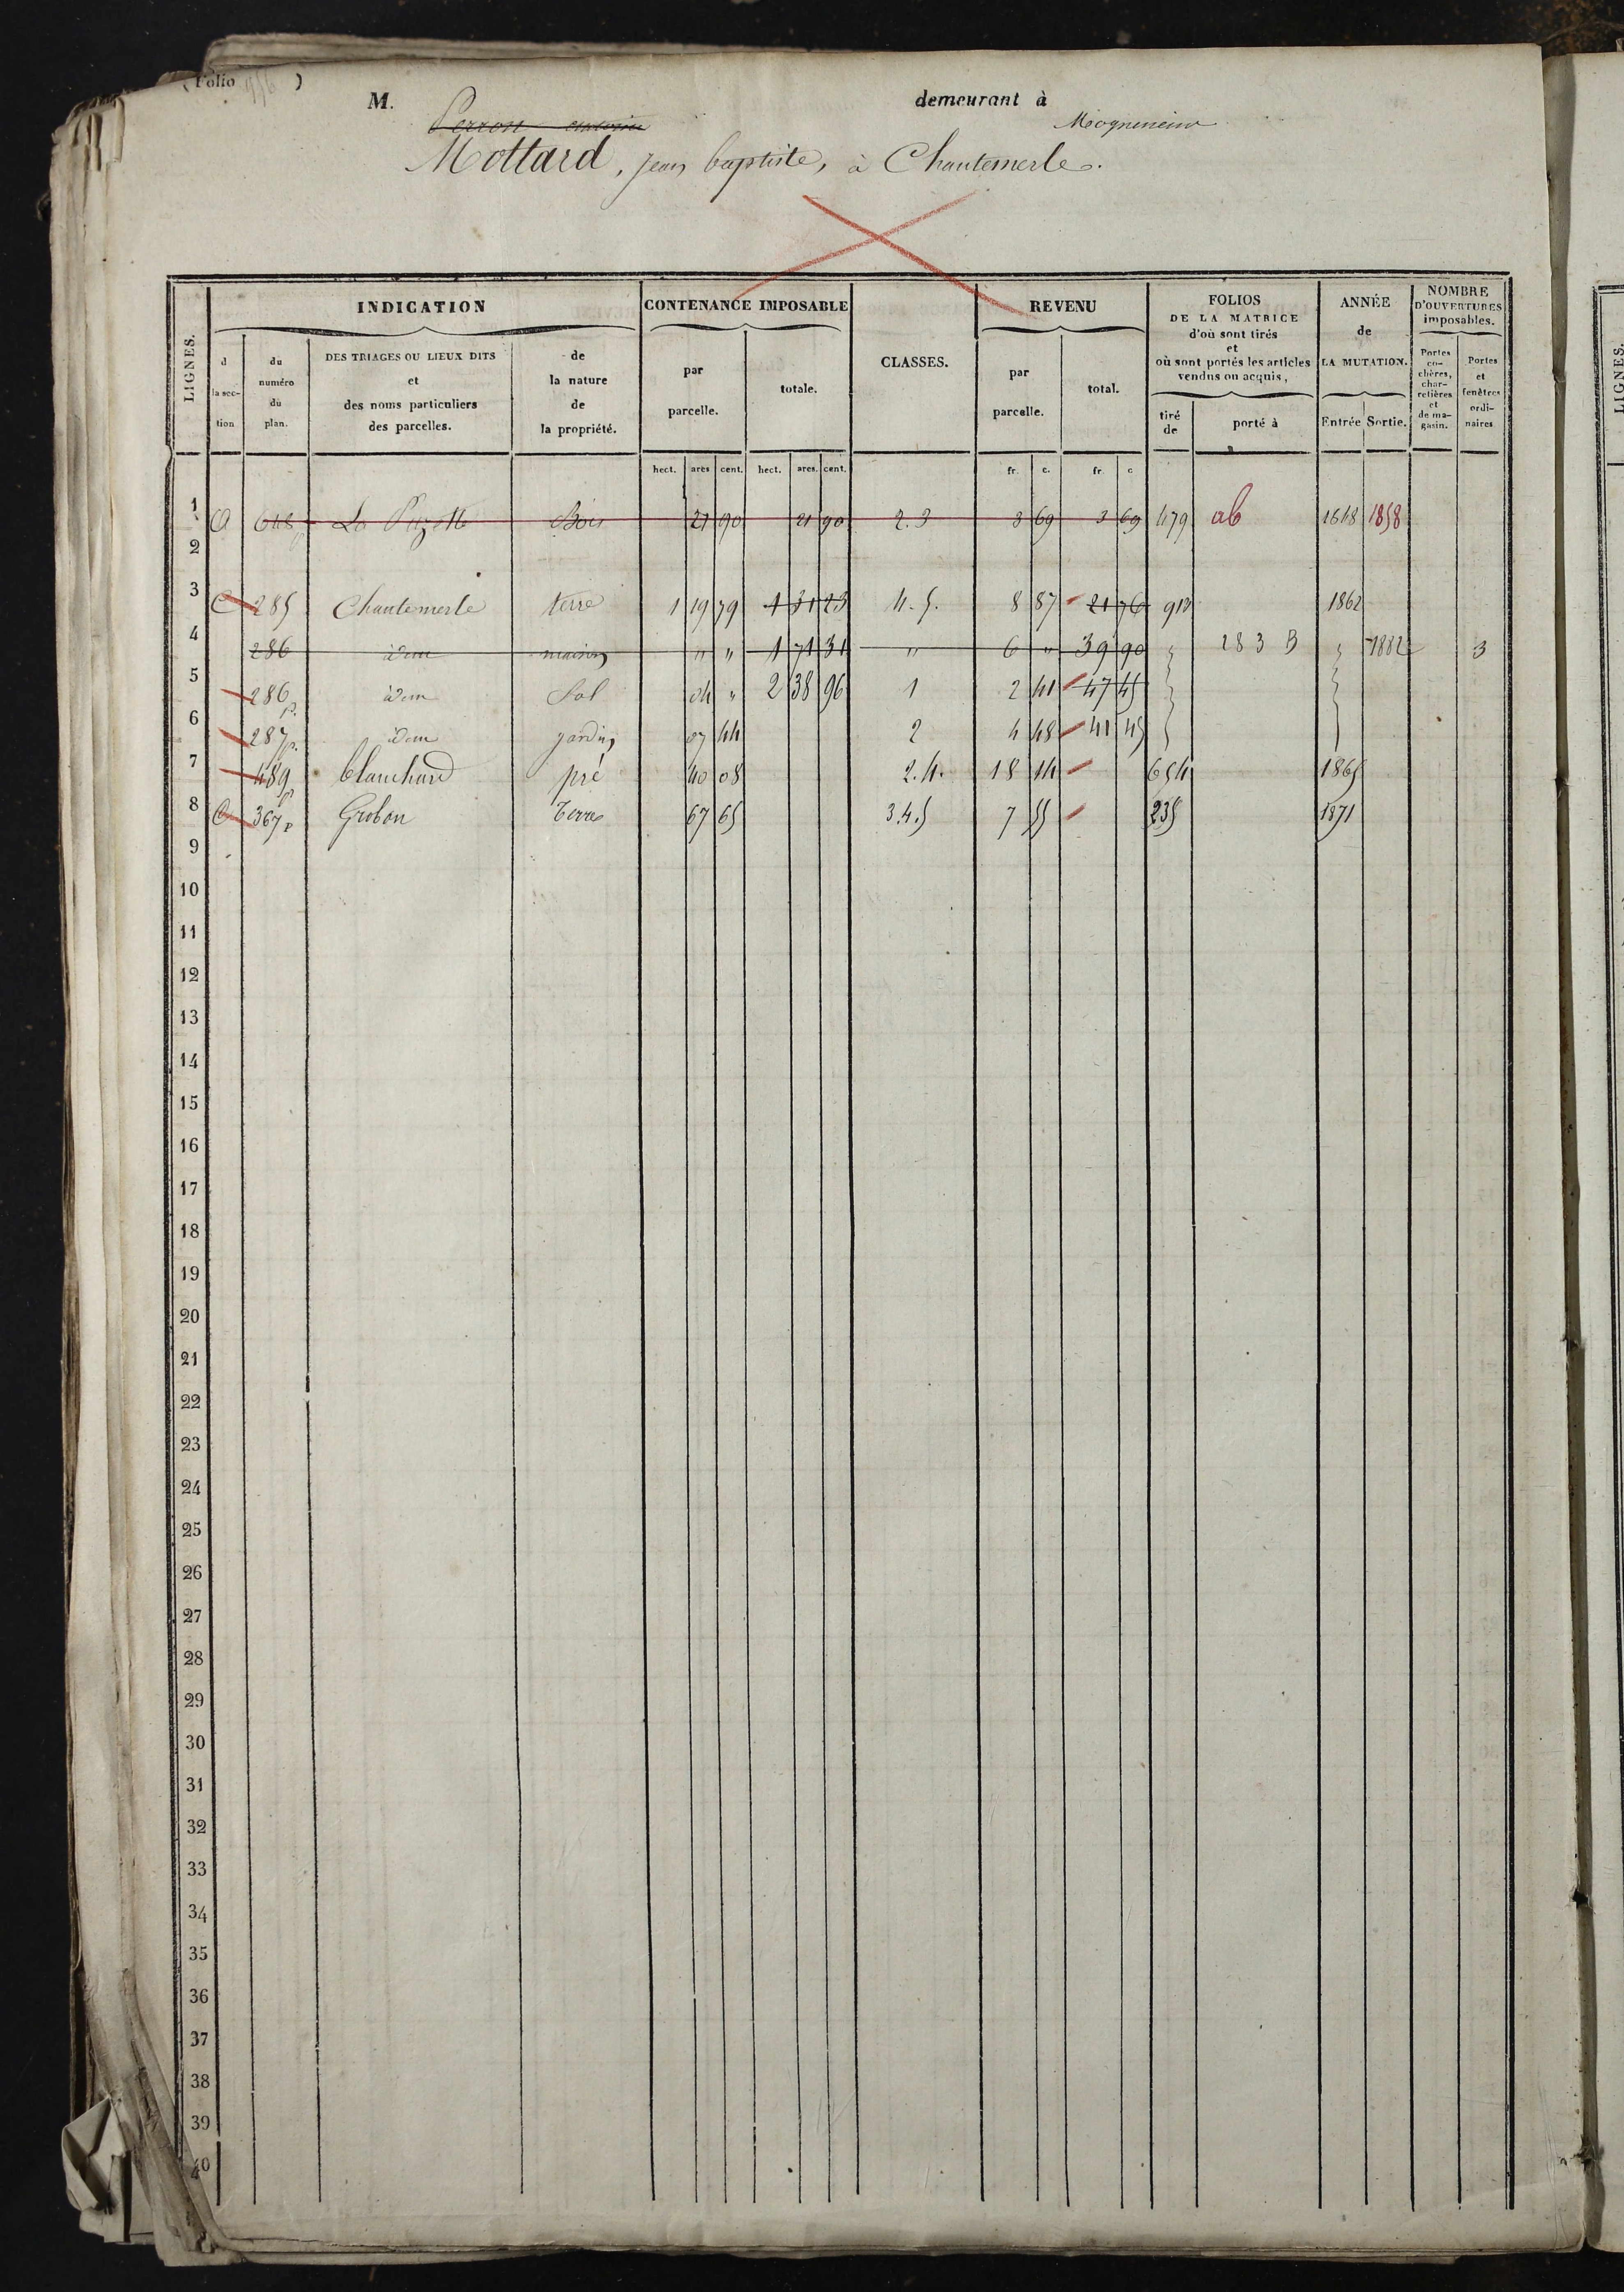 (Folio 956 )
M. Perron demeurant à Mogneneins
Mottard, Jean baptiste, à Chantemerle.
LIGNES. INDICATION CONTENANCE IMPOSABLE CLASSES. REVENU FOLIOS DE LA MATRICE d'où sont tirés et où sont portés les articles vendus ou acquis, ANNÉE de LA MUTATION. NOMBRE D'OUVERTURES imposables.
d la sec- tion du numéro du plan. DES TRIAGES OU LIEUX DITS et des noms particuliers des parcelles. de la nature de la propriété. par parcelle. totale. par parcelle. total. tiré de porté à Entrée Sortie. Portes co- chères, char- retières et de ma- gasin. Portes et fenêtres ordi- naires
hect. ares cent. hect. ares. cent. fr. c. fr. c
1 648 Bois 21 90 21 90 2.3 3 69 3 69 479 ab 1848 1858
2
3 C 285 Chantemerle terre 1 19 79 1 31 23 4.5. 8 87 21 76 913 1862
4 286 idem maison " " 1 71 31 " 6 " 39 90 " 283 B " 1882 3
5 286 p. idem Sol 04 " 2 38 96 1 2 41 47 45
6 287 p. idem jardin 07 44 2 4 48 41 45
7 489 p blanchard pré 40 08 2.4. 18 14 654 1865
8 C 367 p Grobon terre 67 65 3.4.5 7 55 235 1871
9
10
11
12
13
14
15
16
17
18
19
20
21
22
23
24
25
26
27
28
29
30
31
32
33
34
35
36
37
38
39
40
LIGNES.